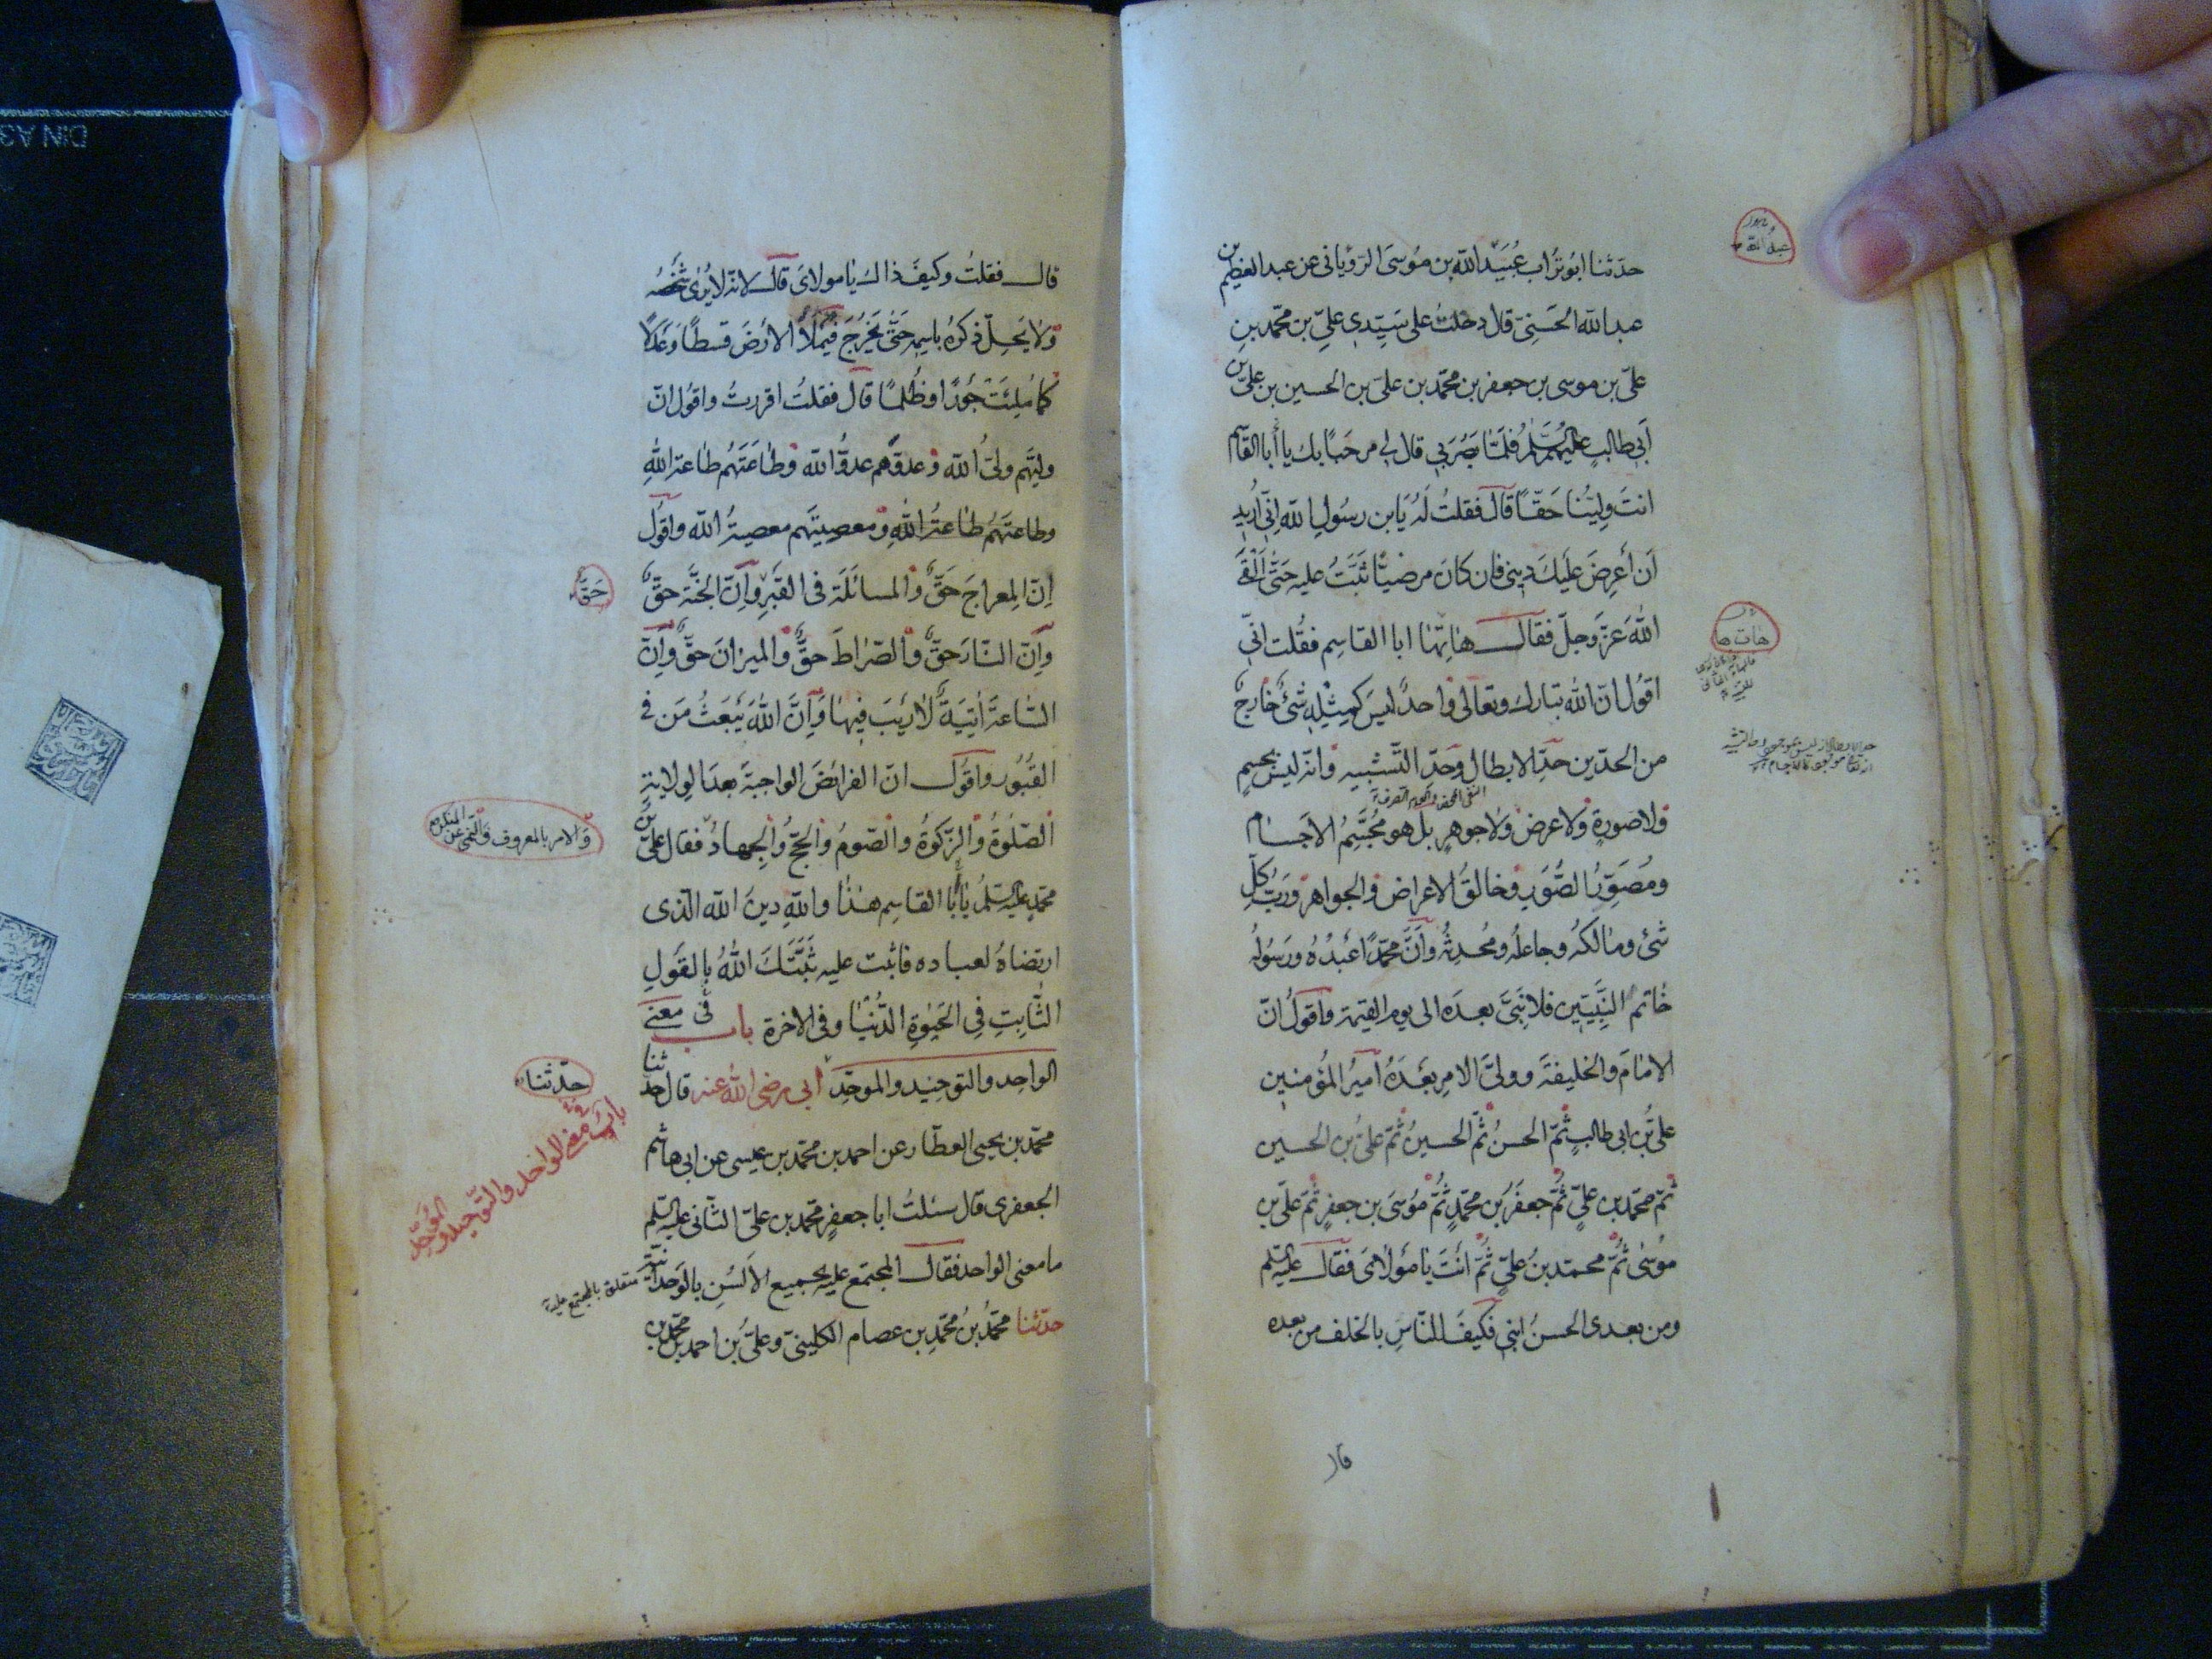 حدثنا ابوتراب عبيد الله بن موسى الروياني عن عبد العظيم بن
عبد الله الحسني قال دخلت على سيدي علي بن محمد بن
علي بن موسى بن جعفر بن محمد بن علي بن الحسين بن علي بن
أبي طالب عليهم السلم فلما بصر بي قال لي مرحبا بك يا أبا القاسم
انت ولينا حقا قال فقلت له يا بن رسول الله إني أريد
أن أعرض عليك ديني فان كان مرضيا ثبت عليه حتى ألقى
الله عز وجل فقال هاتها ابا القاسم فقلت اني
اقول ان الله تبارك وتعالى واحد ليس كمثله شئ خارج
من الحدين حد الابطال وحد التشبيه وانه ليس بجسم
ولا صورة ولا عرض ولا جوهر بل هو مجسم الاجسام
ومصور الصور وخالق الاعراض والجواهر ورب كل
شئ ومالكه وجاعله ومحدثه وأن محمدا عبده ورسوله
خاتم النبيين فلا نبي بعده الى يوم القيمة واقول ان
الامام والخليفة وولي الامر بعده أمير المؤمنين
علي بن ابي طالب ثم الحسن ثم الحسين ثم علي بن الحسين
ثم محمد بن علي ثم جعفر بن محمد ثم موسى بن جعفر ثم علي بن
موسى ثم محمد بن علي ثم انت يا مولاي فقال عليه السلم
ومن بعدي الحسن ابني فكيف للناس بالخلف من بعده
قال
قال فقلت وكيف ذاك يا مولاي قال لانه لا يرى شخصه
ولا يحل ذكره باسمه حتى يخرج فيملأ الارض قسطا وعدلا
كما ملئت جورا وظلما قال فقلت اقررت واقول ان
وليهم ولي الله وعدوهم عدو الله وطاعتهم طاعة الله
وطاعتهم طاعة الله ومعصيتهم معصية الله واقول
ان المعراج حق والمسائلة في القبر وان الجنة حق
حق
وان النار حق والصراط حق والميزان حق وان
الساعة اتية لا ريب فيها وأن الله يبعث من في
القبور واقول ان الفرائض الواجبة بعد الولاية
الصلوة والزكوة والصوم والحج والجهاد فقال علي بن
والامر بالمعروف والنهي عن المنكر
محمد عليه السلم يا أبا القاسم هذا والله دين الله الذي
ارتضاه لعباده فاثبت عليه ثبتك الله بالقول
الثابت في الحيوة الدنيا وفي الاخرة باب في معنى
الواحد والتوحيد والموحد أبي رضي الله عنه قال حدثنا
حدثنا
باب معنى الواحد والتوحيد والموحد
محمد بن يحيى العطار عن احمد بن محمد بن عيسى عن ابي هاشم
الجعفري قال سئلت ابا جعفر محمد بن علي الثاني عليه السلم
ما معنى الواحد فقال المجتمع عليه بجميع الألسن بالوحدانية
متعلق بالمجتمع عليه
حدثنا محمد بن محمد بن عصام الكليني وعلي بن احمد بن محمد بن